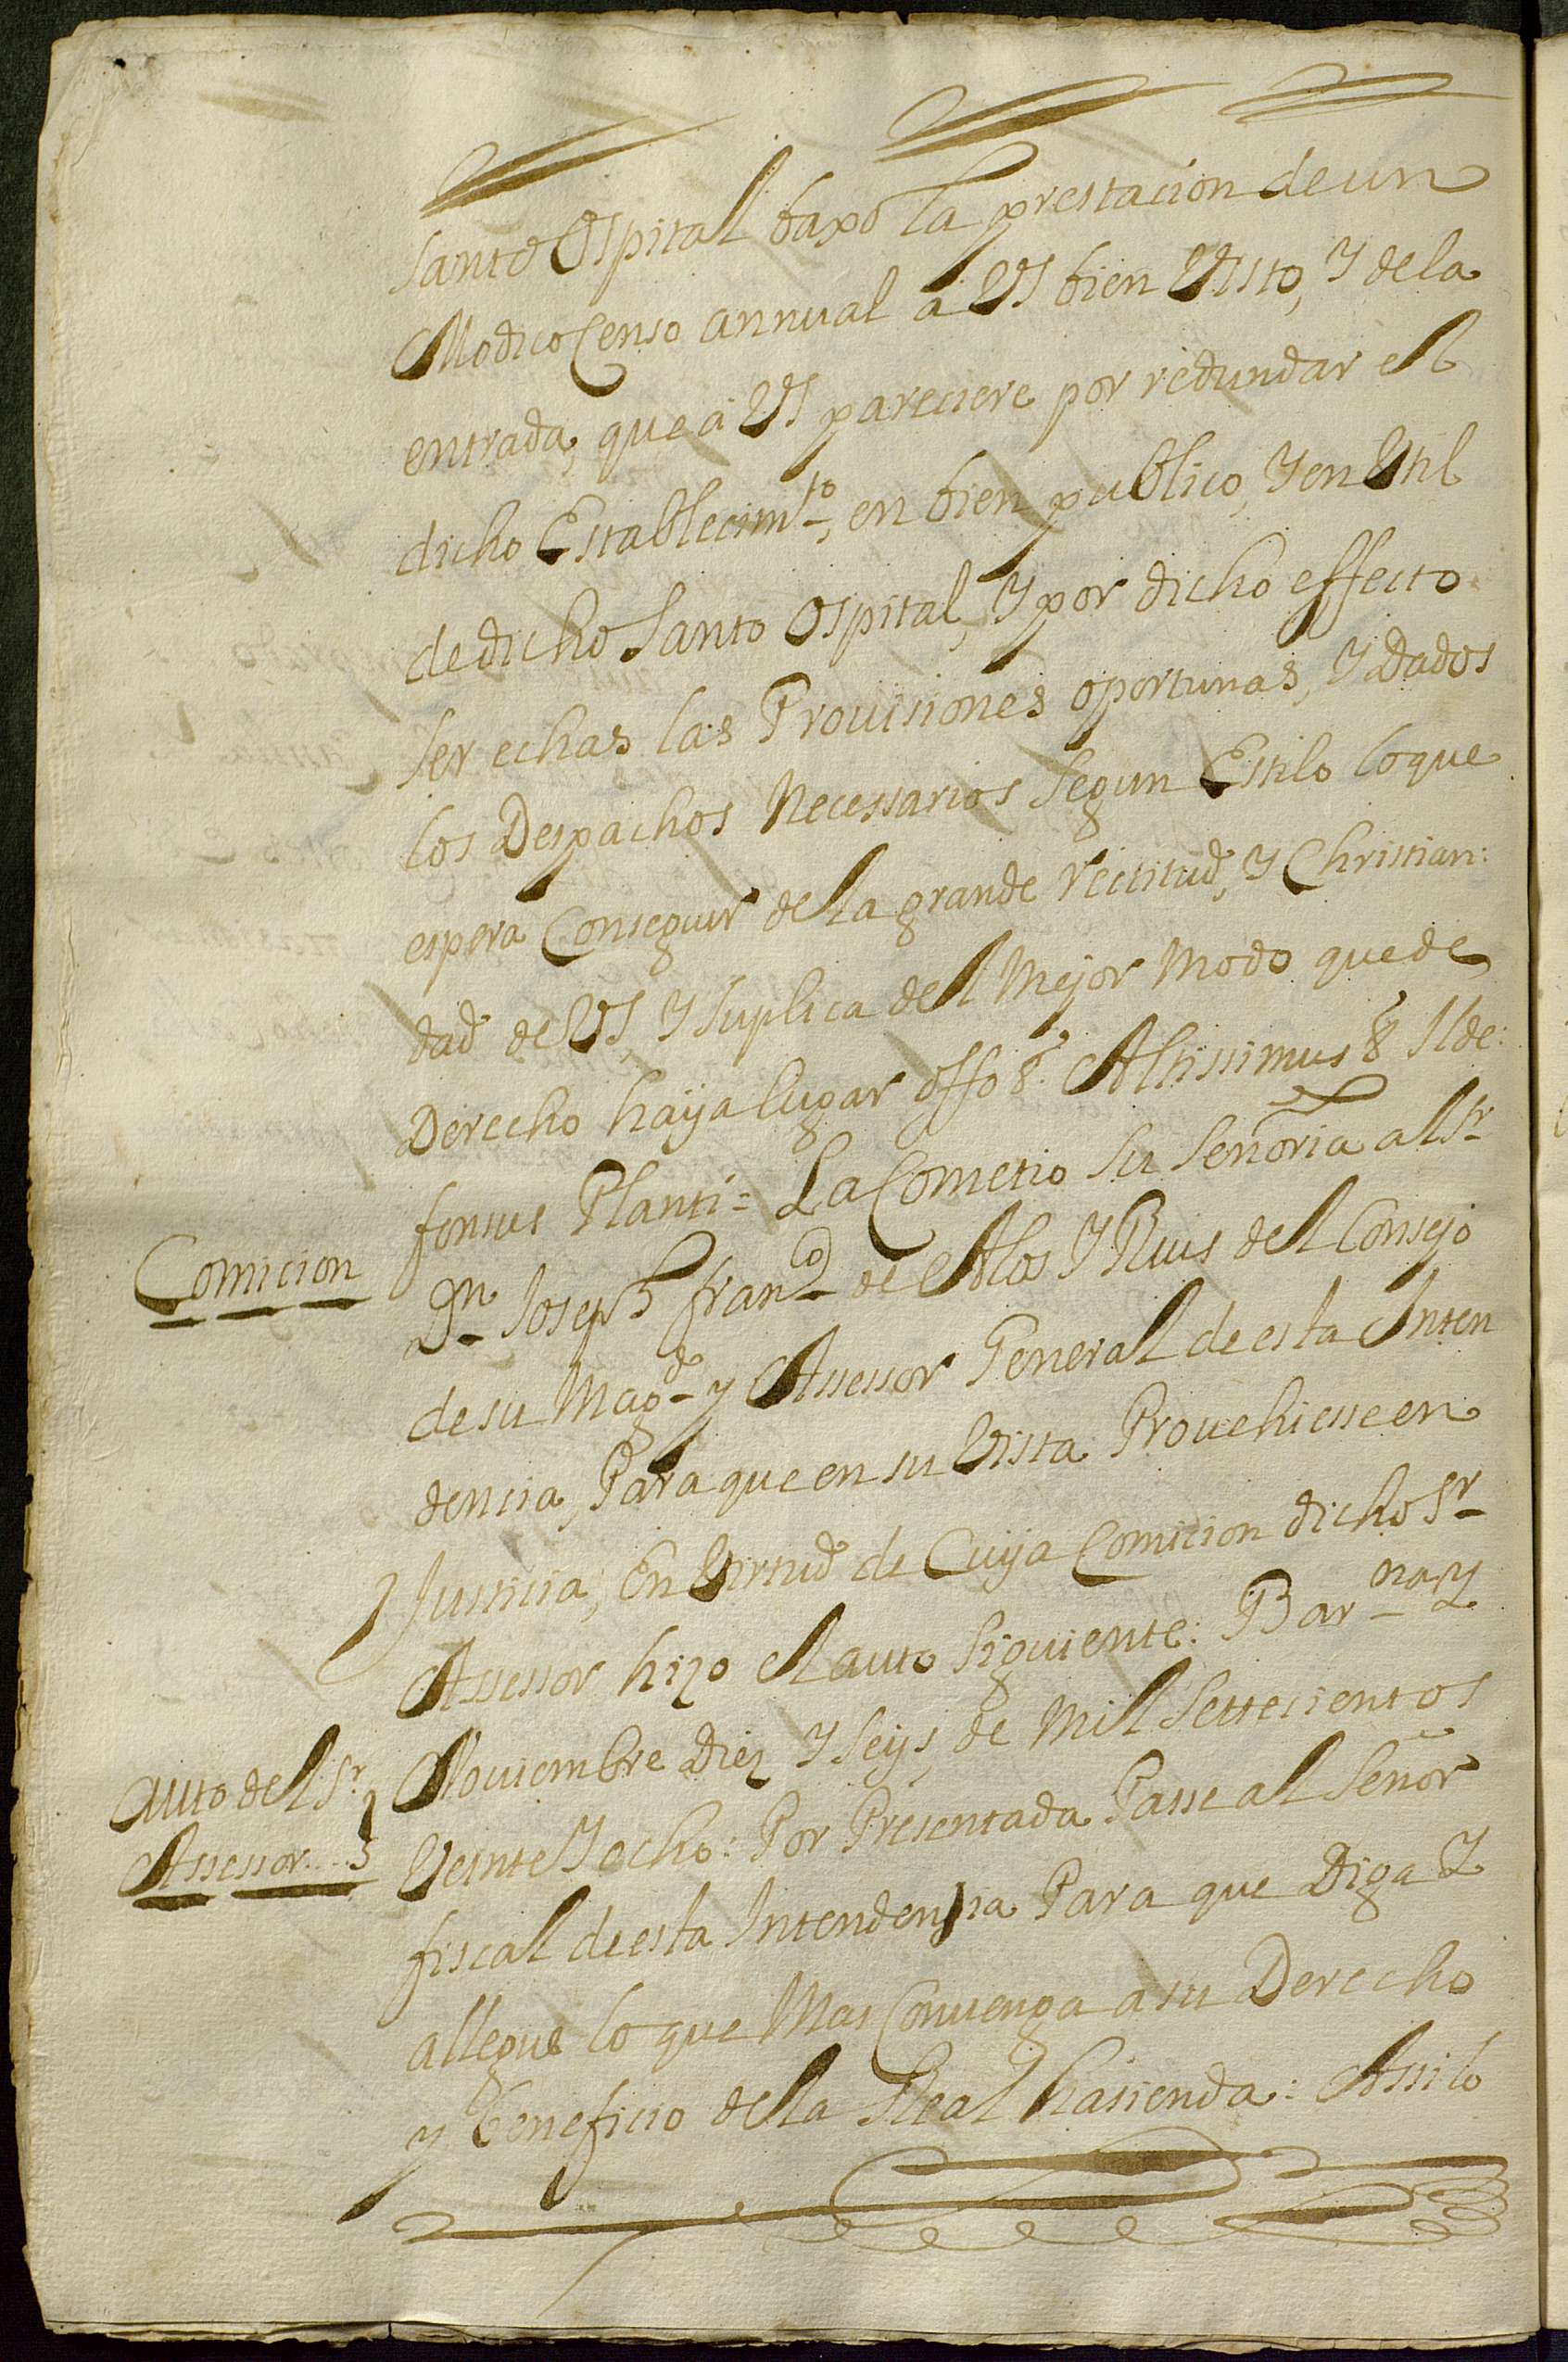 Santo Ospital baxo la prestacion de un
Modico Censo annual a VS bien Visto, Y de la
entrada, que a VS pareciere por redundar el
dicho Establecim.to, en bien publico, Y en Util
de dicho Santo Ospital, Y por dicho effecto
ser echas las Provisiones oportunas, Y dados
los Despachos Necessarios Segun Estilo lo que
espera Conseguir de la grande rectitud, Y Christian:
dad de VS, Y Suplica del Mejor Modo que de
Derecho haya lugar offo &.ª Altissimus &.ª Ilde:
fonsus Planti = La Cometio Su Señoria al S.r
Comicion
D.n Joseph fran.co de Alos Y Rius del Consejo
de su Mag.d y Assessor General de esta Inten
dencia, Para que en su Vista Provehiesse en
Justicia, En Virtud de Cuya Comicion dicho S.r
Assessor hizo el auto Siguiente: Bar.na Y
Auto del S.r
Assessor...
Noviembre Diez Y Seys, de Mil Settecientos
Veinte Y ocho: Por Presentada Passe al Señor
fiscal de esta Intendencia Para que Diga Y
allegue lo que Mas Convenga a su Derecho
y beneficio de la Real hasienda: Assi lo